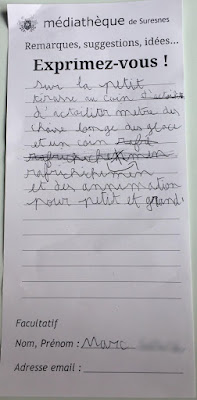 médiathèque de Suresnes
Remarques, suggestions, idées...
Exprimez-vous !
sur la petit
térasse au coin d'actuali
d'actualiter metre des
chaise longe des glace
et un coin
rafrichichimen
et des annimation
pour petit et grand.
Facultatif
Nom, Prénom : Marc
Adresse email :